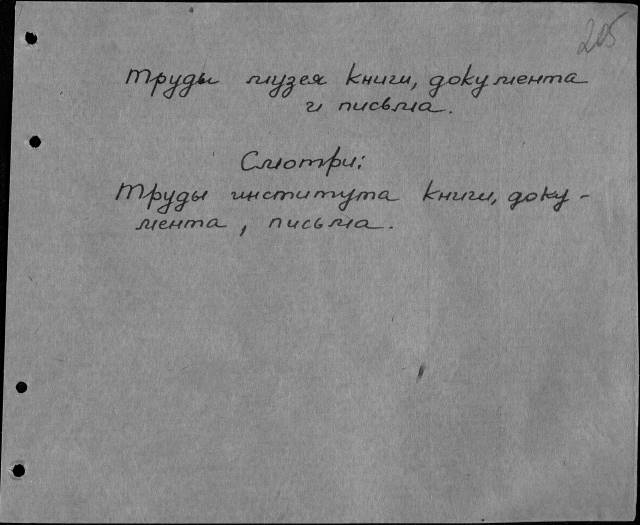 205
Труды музея книги, документа
и письма.
Смотри:
Труды института книги, доку-
мента, письма.